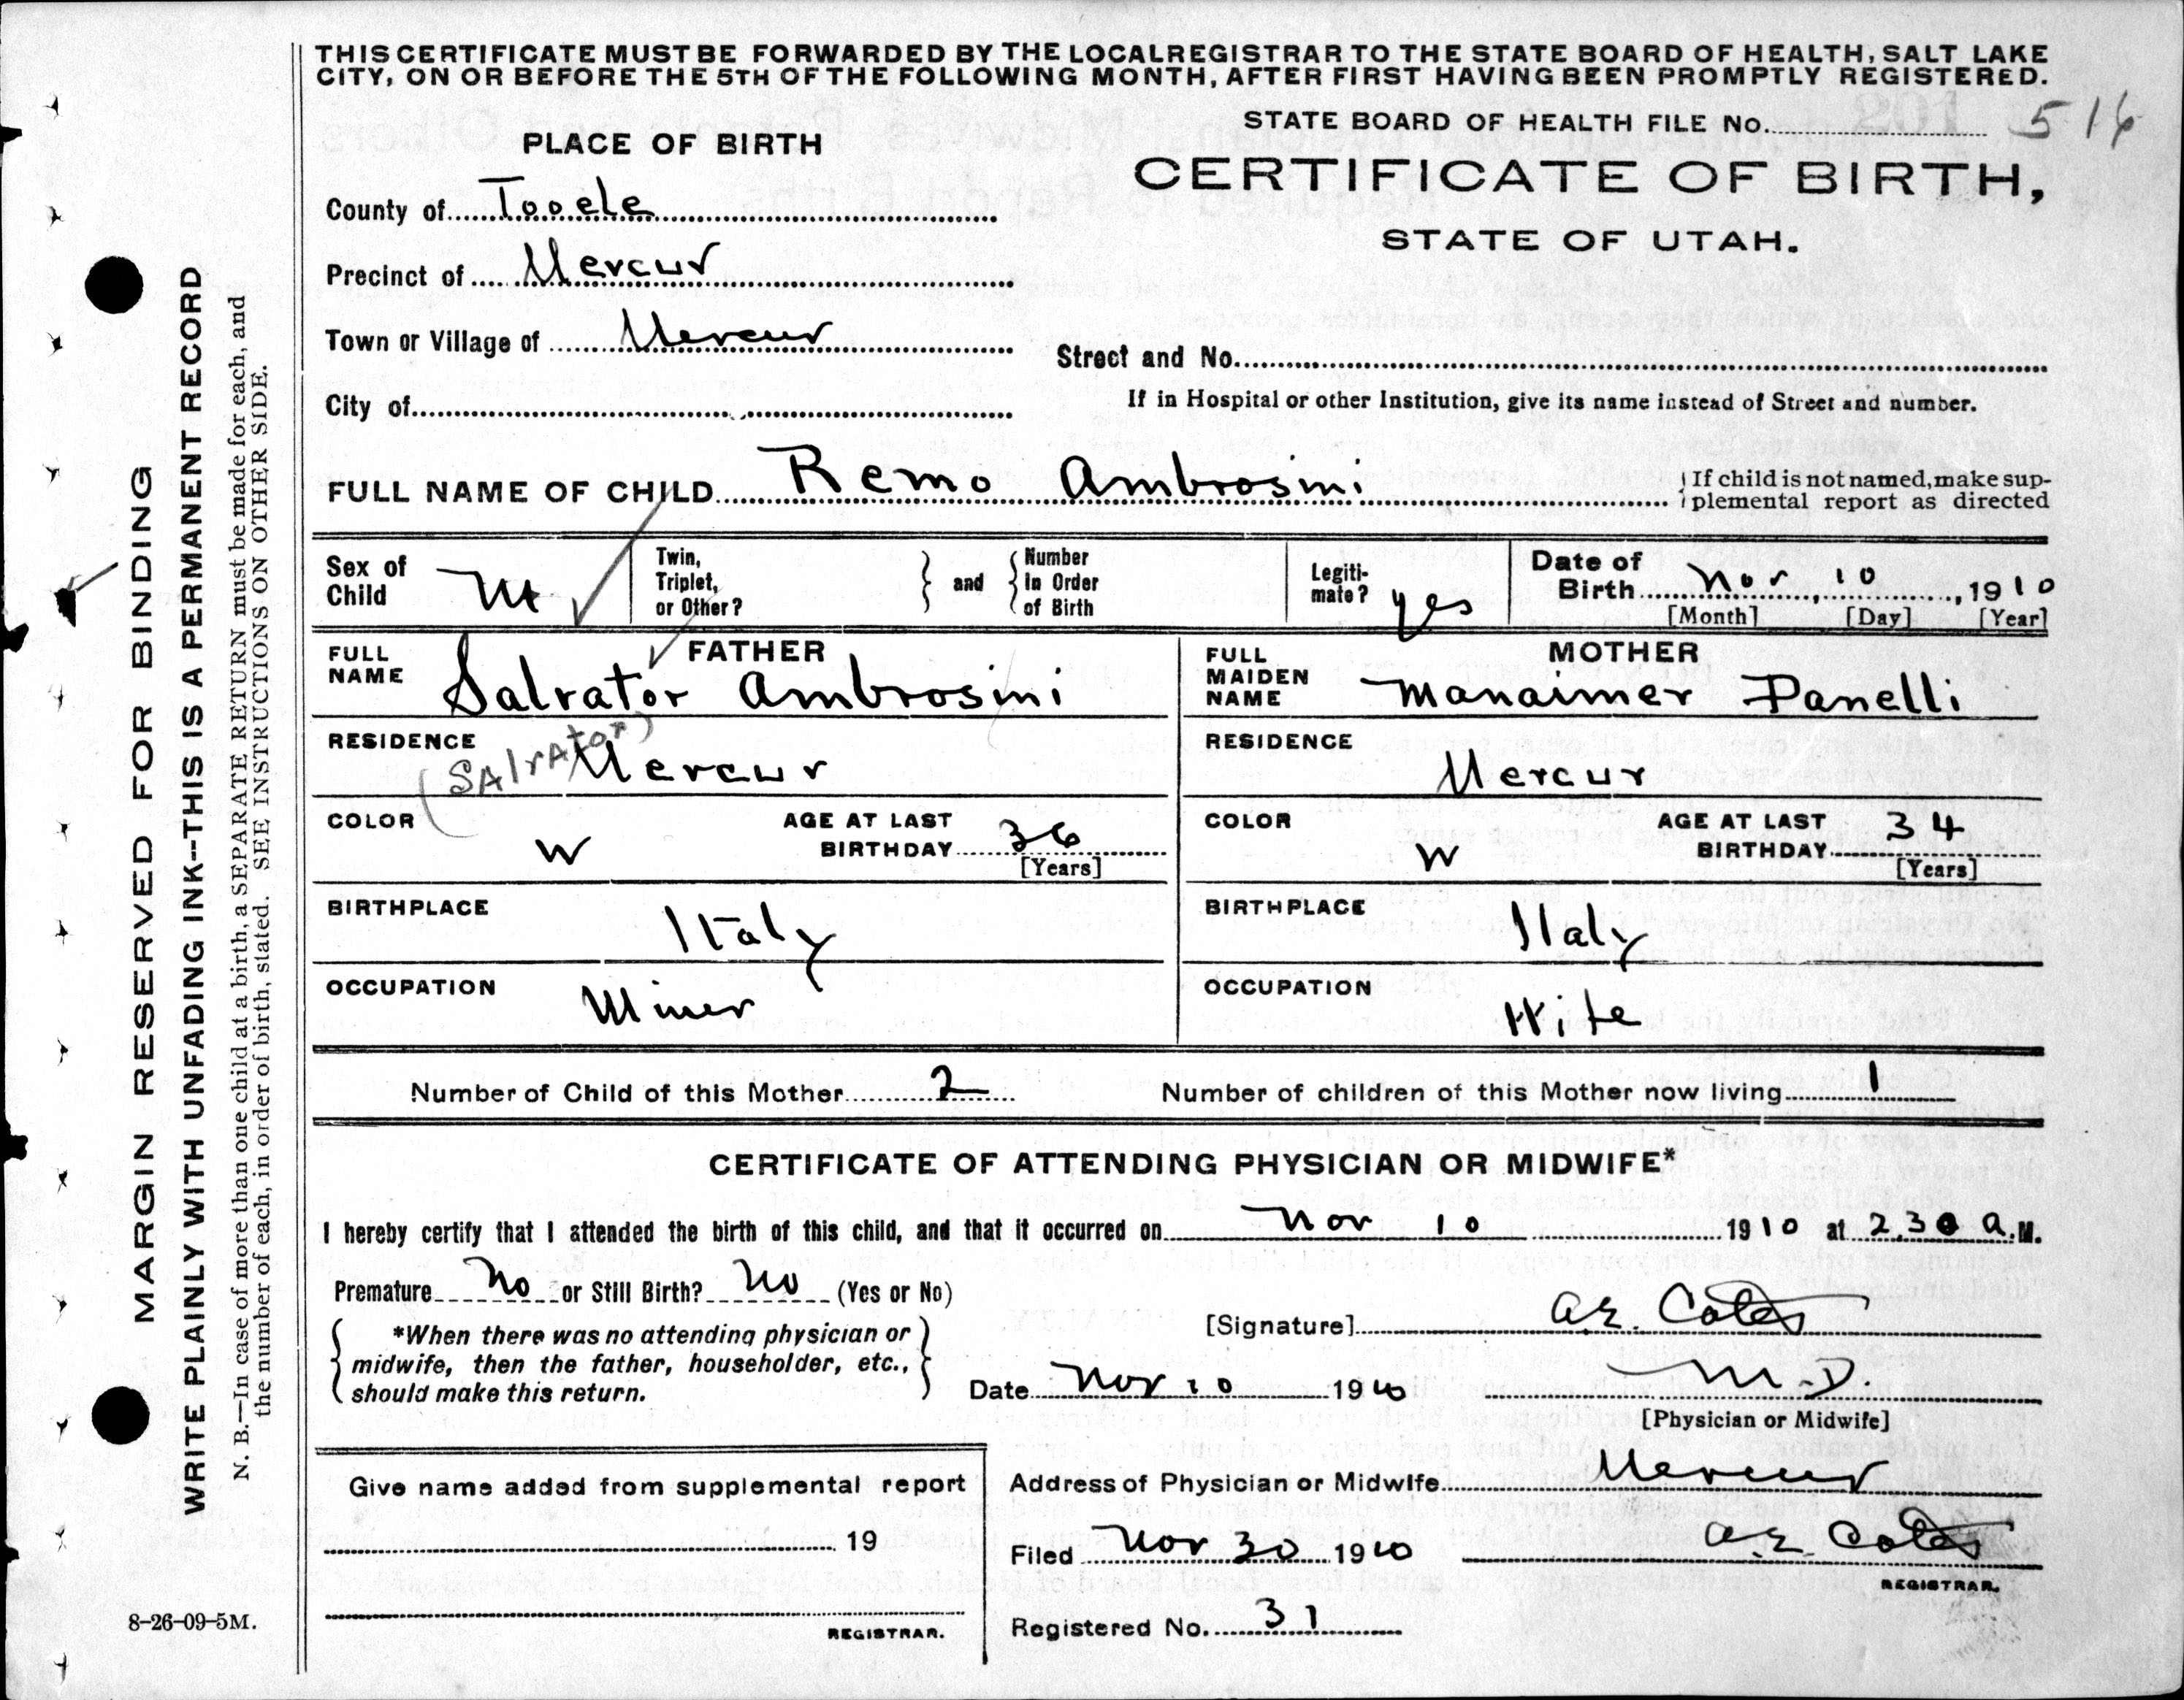 THIS CERTIFICATE MUST BE FORWARDED BY THE LOCAL REGISTRAR TO THE STATE BOARD OF HEALTH, SALT LAKE
CITY, ON OR BEFORE THE 5TH OF THE FOLLOWING MONTH, AFTER FIRST HAVING BEEN PROMPTLY REGISTERED.
STATE BOARD OF HEALTH FILE No. 516
PLACE OF BIRTH
CERTIFICATE OF BIRTH,
STATE OF UTAH.
County of Tooele
Precinct of Mercur
Town or Village of Mercur
Street and No.
City of
If in Hospital or other Institution, give its name instead of Street and number.
FULL NAME OF CHILD Remo Ambrosini
If child is not named, make sup-
plemental report as directed
Sex of Child M
Twin, Triplet, or Other?
and
Number In Order of Birth
Legiti-mate? yes
Date of Birth Nov, 10, 1910
[Month] [Day] [Year]
FATHER
FULL NAME Salvator Ambrosini
RESIDENCE Mercur
(SAlvAtor)
COLOR W
AGE AT LAST BIRTHDAY 36
[Years]
BIRTHPLACE Italy
OCCUPATION Miner
MOTHER
FULL MAIDEN NAME Manaimer Panelli
RESIDENCE Mercur
COLOR W
AGE AT LAST BIRTHDAY 34
[Years]
BIRTHPLACE Italy
OCCUPATION H Wife
Number of Child of this Mother 2
Number of children of this Mother now living 1
CERTIFICATE OF ATTENDING PHYSICIAN OR MIDWIFE*
I hereby certify that I attended the birth of this child, and that it occurred on Nov 10 1910 at 2.30 a.M.
Premature No or Still Birth? No (Yes or No)
*When there was no attending physician or
midwife, then the father, householder, etc.,
should make this return.
[Signature] A.E. Coles
Date Nov 10 1910 M.D.
[Physician or Midwife]
Give name added from supplemental report
19
REGISTRAR.
Address of Physician or Midwife Mercur
Filed Nov 30 1910 A.E. Coles
REGISTRAR.
Registered No. 31
8-26-09-5M.
MARGIN RESERVED FOR BINDING
WRITE PLAINLY WITH UNFADING INK--THIS IS A PERMANENT RECORD
N. B.—In case of more than one child at a birth, a SEPARATE RETURN must be made for each, and
the number of each, in order of birth, stated. SEE INSTRUCTIONS ON OTHER SIDE.